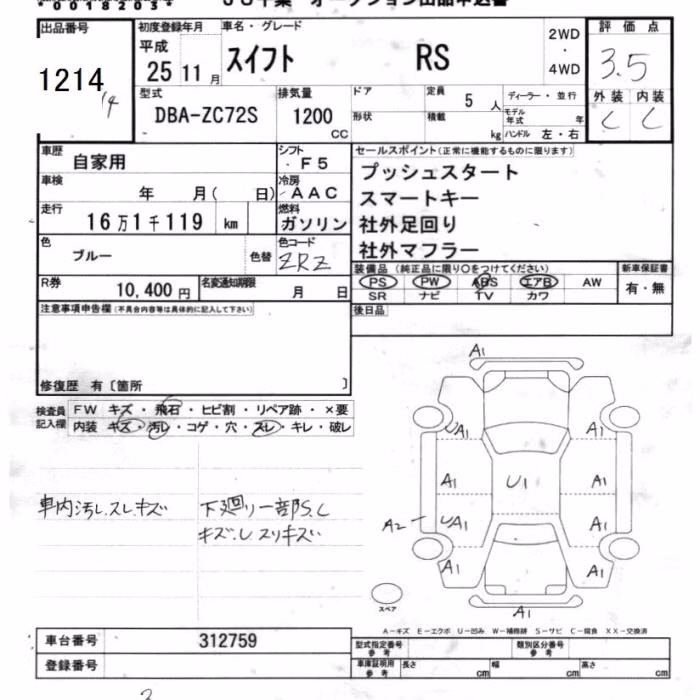 *00182034*
オークション出品申込書
出品番号 初度登録年月 車名・グレード 評価点
1214 平成 25 11月 スイフト RS 2WD・4WD 3.5
14
型式 排気量 ドア 定員 ディーラー・並行 外装 内装
DBA-ZC72S 1200 CC 形状 積載 5人 kg モデル年式 年 ハンドル 左・右 C C
車歴 自家用 シフト ・F5 セールスポイント(正常に機能するものに限ります)
車検 年 月( 日) 冷房 AAC プッシュスタート
スマートキー
走行 16万1千119 km 燃料 ガソリン 社外足回り
色 ブルー 色替 色コード ZRZ 社外マフラー
装備品 (純正品に限り○をつけてください) 新車保証書
R券 10,400円 名変通知期限 月 日 PS PW ABS エアB AW 有・無
SR ナビ TV カワ
注意事項申告欄(不具合内容等は具体的に記入して下さい) 後日品
修復歴 有〔箇所 〕
検査員記入欄 FW キズ・飛石・ヒビ割・リペア跡・×要
内装 キズ・汚れ・コゲ・穴・スレ・キレ・破レ
車内汚し.スレ.キズ 下廻り一部S.C
キズ.U スリキズ
A1
UA1 A1
A1 U1 A1
A2 UA1 A1
A1 A1
A1
スペア
A-キズ E-エクボ U-凹み W-補修跡 S-サビ C-腐食 XX-交換済
車台番号 312759
登録番号
型式指定番号 参考 類別区分番号 参考
車庫証明用 参考 長さ cm 幅 cm 高さ cm